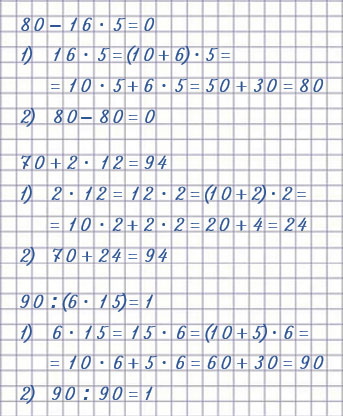 80 – 16 · 5 = 0
1) 16 · 5 = (10 + 6) · 5 =
= 10 · 5 + 6 · 5 = 50 + 30 = 80
2) 80 – 80 = 0
70 + 2 · 12 = 94
1) 2 · 12 = 12 · 2 = (10 + 2) · 2 =
= 10 · 2 + 2 · 2 = 20 + 4 = 24
2) 70 + 24 = 94
90 : (6 · 15) = 1
1) 6 · 15 = 15 · 6 = (10 + 5) · 6 =
= 10 · 6 + 5 · 6 = 60 + 30 = 90
2) 90 : 90 = 1